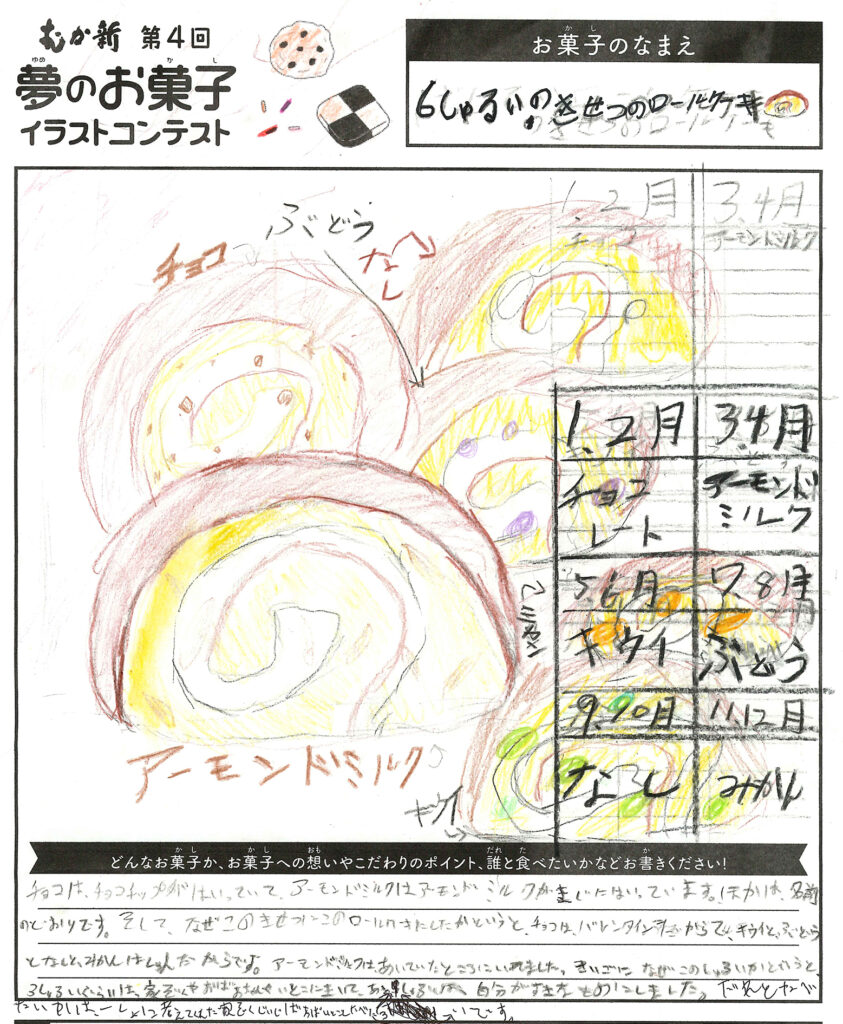 むか新 第4回
夢のお菓子
ゆめ か し
イラストコンテスト
お菓子のなまえ
か し
6しゅるいのきせつのロールケーキ
ぶどう
チョコ
なし
1.2月 3.4月
チョコ アーモンドミルク
1.2月 3.4月
チョコレート アーモンドミルク
5.6月 7.8月
キウイ ぶどう
9.10月 11.12月
なし みかん
みかん
アーモンドミルク
キウイ
どんなお菓子か、お菓子への想いやこだわりのポイント、誰と食べたいかなどお書きください!
チョコは、チョコチップがはいっていて、アーモンドミルクはアーモンドミルクがきじにはいっています。ほかは、名前
のとおりです。そして、なぜこのきせつにこのロールケーキにしたかというと、チョコは、バレンタインがあるからで、キウイと、ぶどう
となしと、みかんはしゅんだからですよ。アーモンドミルクは、あいていたところにいれました。さいごになぜこのしゅるいかというと、
3しゅるいぐらいは、家ぞくやおばあちゃんやいとこにきいて、あと しゅるいは、自分がすきなものにしました。だれとたべ
たいかは、いっしょに考えてくれた家ぞく